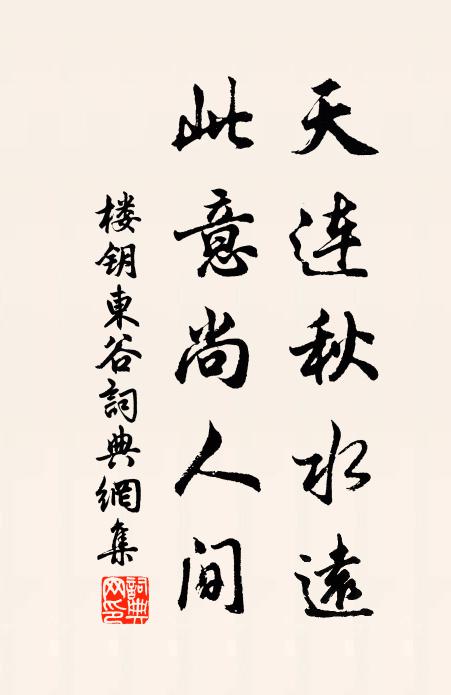 天连秋水遠
此意尚人间
楼钥東谷詞典網集
詞典网印